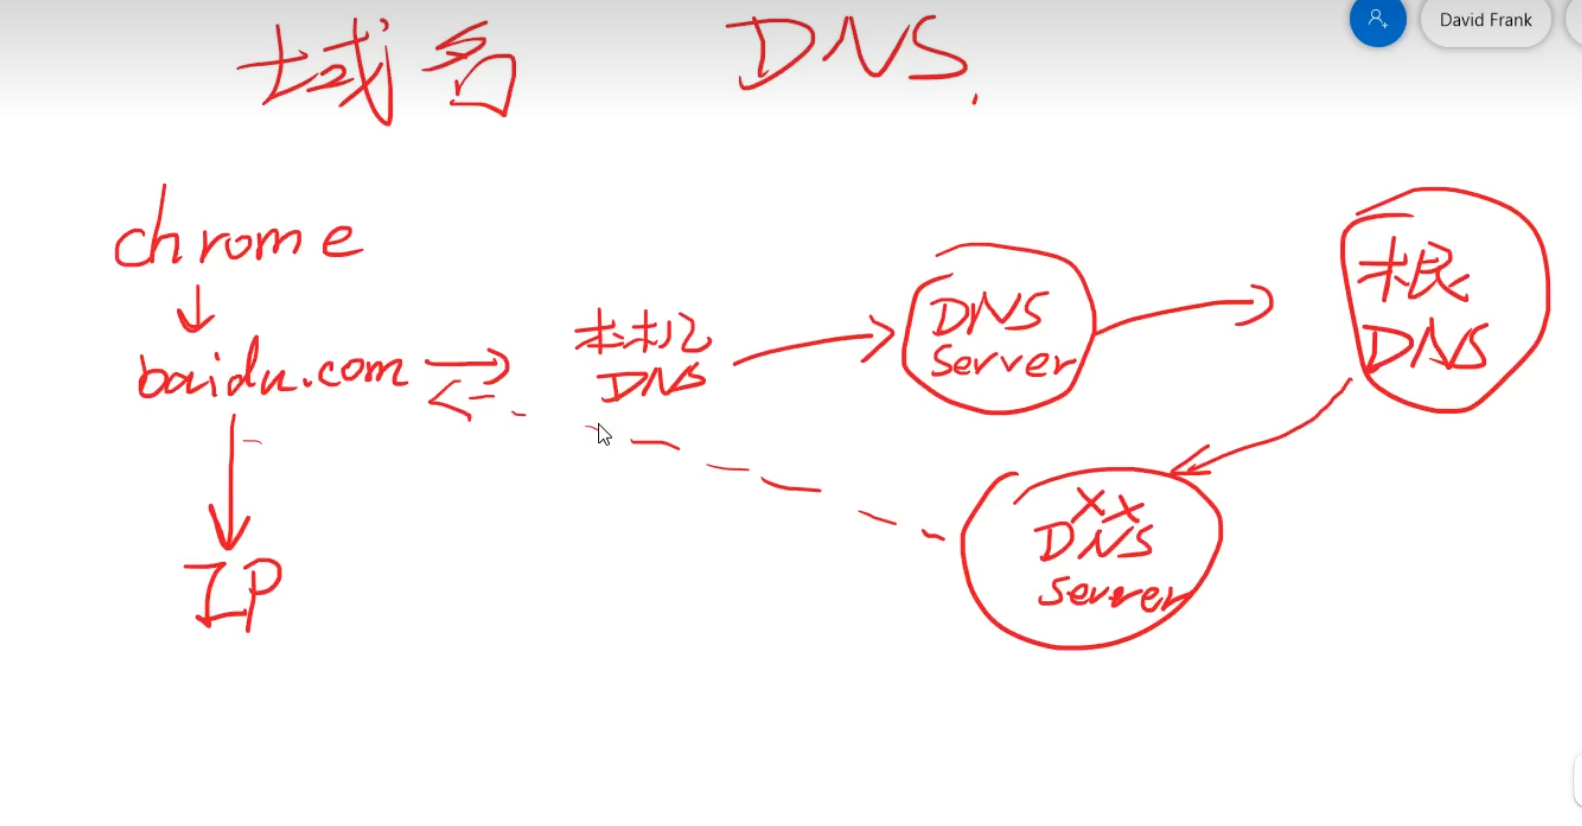 David Frank
域名 DNS.
chrome
baidu.com
本机
DNS
DNS
Server
根
DNS
XX
DNS
Server
IP